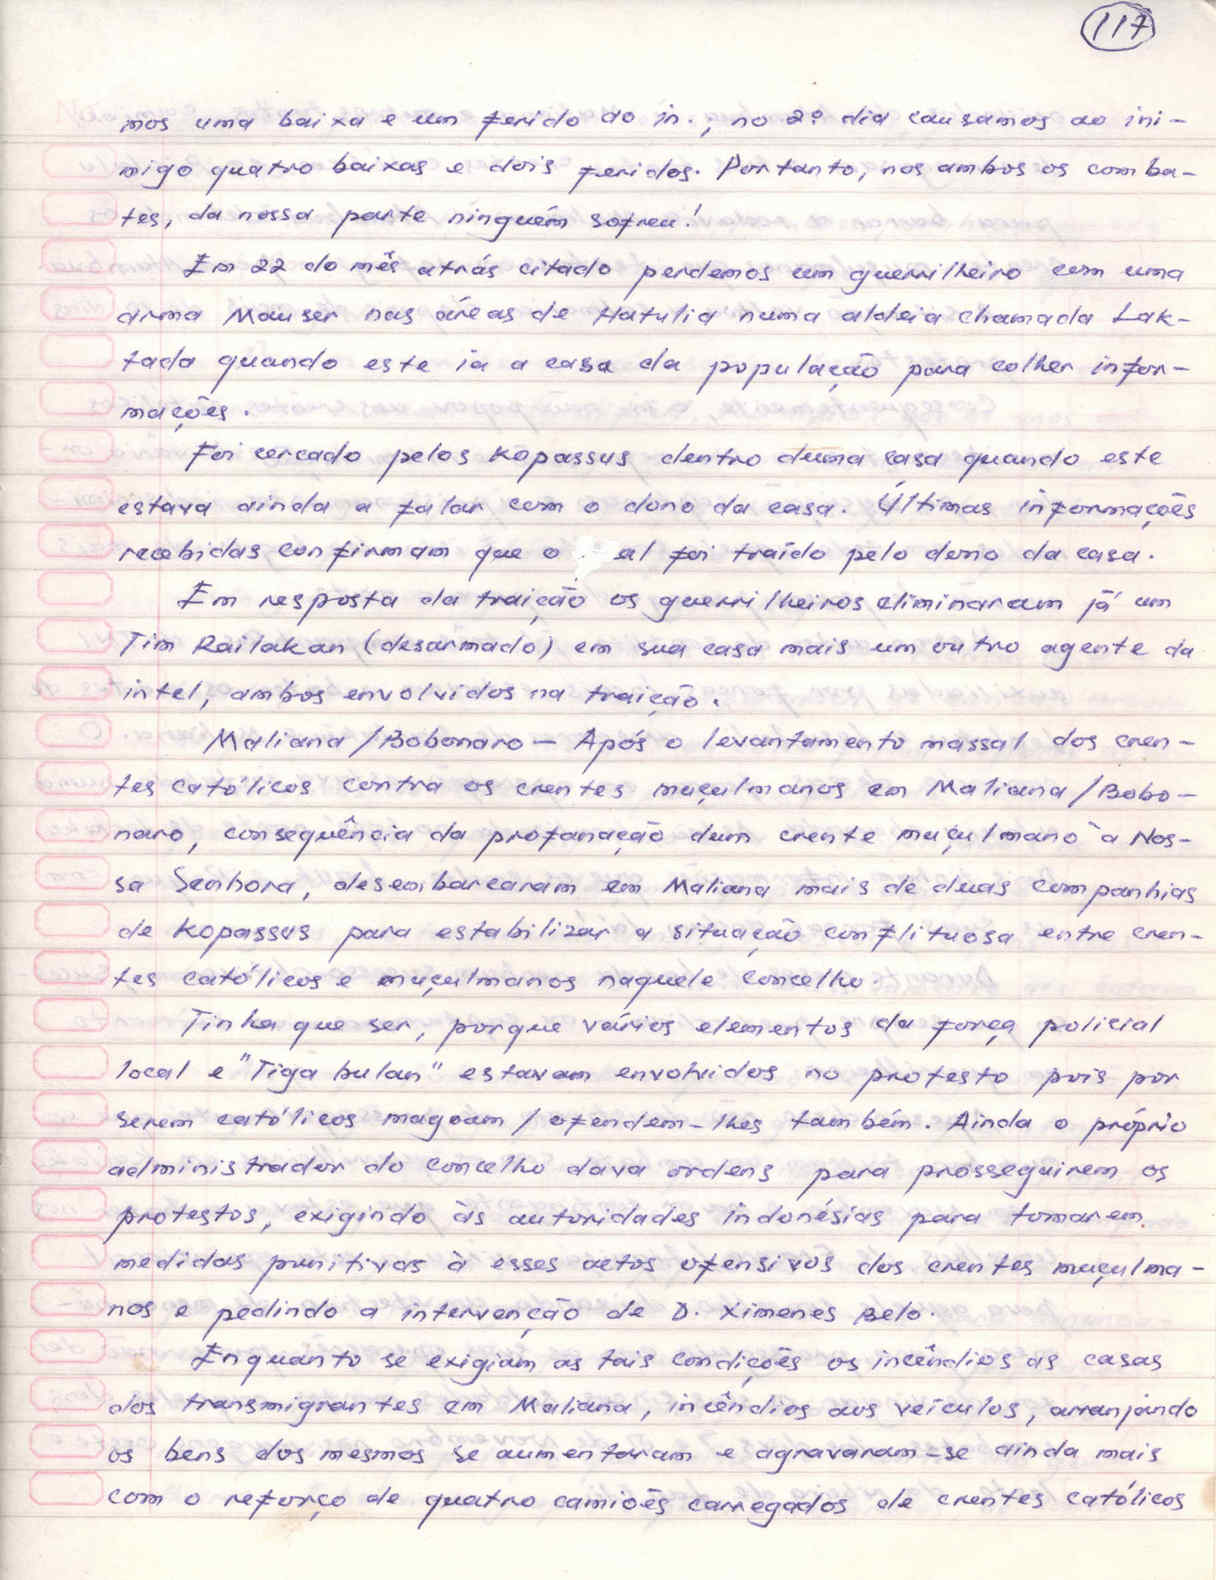 117
mos uma baixa e um ferido do in., no 2º dia causamos ao ini-
migo quatro baixas e dois feridos. Portanto, nos ambos os comba-
tes, da nossa parte ninguém sofreu!
Em 22 do mês atrás citado perdemos um guerrilheiro com uma
arma Mauser nas áreas de Hatulia numa aldeia chamada Lak-
tada quando este ia a casa da população para colher infor-
mações.
Foi cercado pelos Kopassus dentro duma casa quando este
estava ainda a falar com o dono da casa. Últimas informações
recebidas confirmam que o al foi traído pelo dono da casa.
Em resposta da traição os guerrilheiros eliminaram já um
Tim Railakan (desarmado) em sua casa mais um outro agente da
intel, ambos envolvidos na traição.
Maliana/Bobonaro — Após o levantamento massal dos cren-
tes católicos contra os crentes muçulmanos em Maliana/Bobo-
naro, consequência da profanação dum crente muçulmano à Nos-
sa Senhora, desembarcaram em Maliana mais de duas companhias
de Kopassus para estabilizar a situação conflituosa entre cren-
tes católicos e muçulmanos naquele concelho.
Tinha que ser, porque vários elementos da força policial
local e "Tiga bulan" estavam envolvidos no protesto pois por
serem católicos magoam/ofendem-lhes também. Ainda o próprio
administrador do concelho dava ordens para prosseguirem os
protestos, exigindo às autoridades indonésias para tomarem
medidas punitivas à esses actos ofensivos dos crentes muçulma-
nos e pedindo a intervenção de D. Ximenes Belo.
Enquanto se exigiam as tais condições os incêndios as casas
dos transmigrantes em Maliana, incêndios aos veículos, arranjando
os bens dos mesmos se aumentaram e agravaram-se ainda mais
com o reforço de quatro camiões carregados de crentes católicos